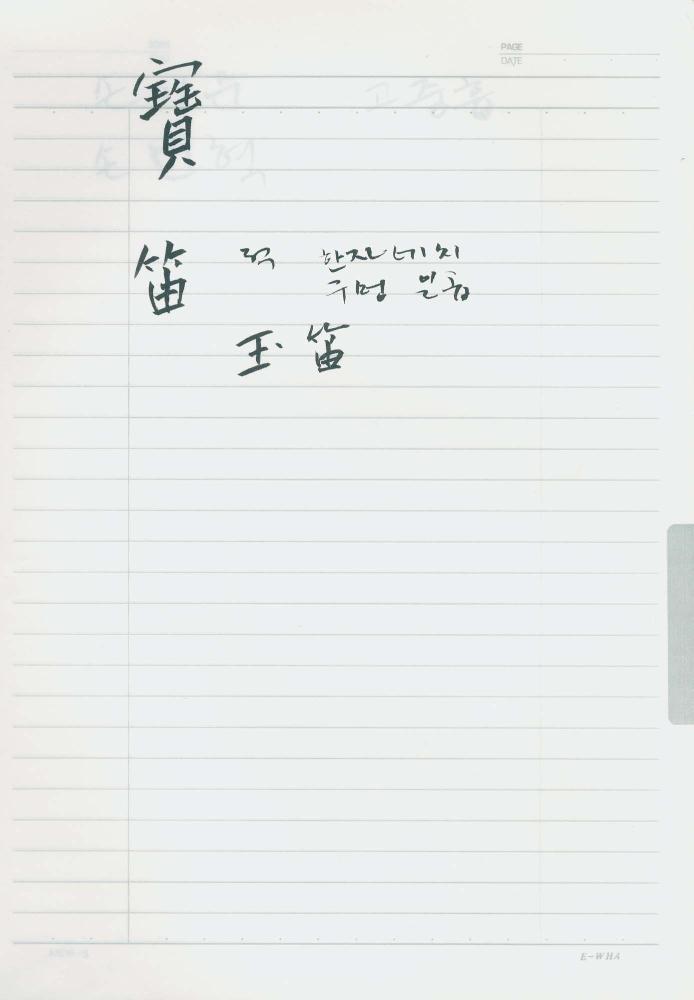 PAGE
DATE
寶
笛 적 한자 네 치
구멍 일곱
玉笛
E-WHA